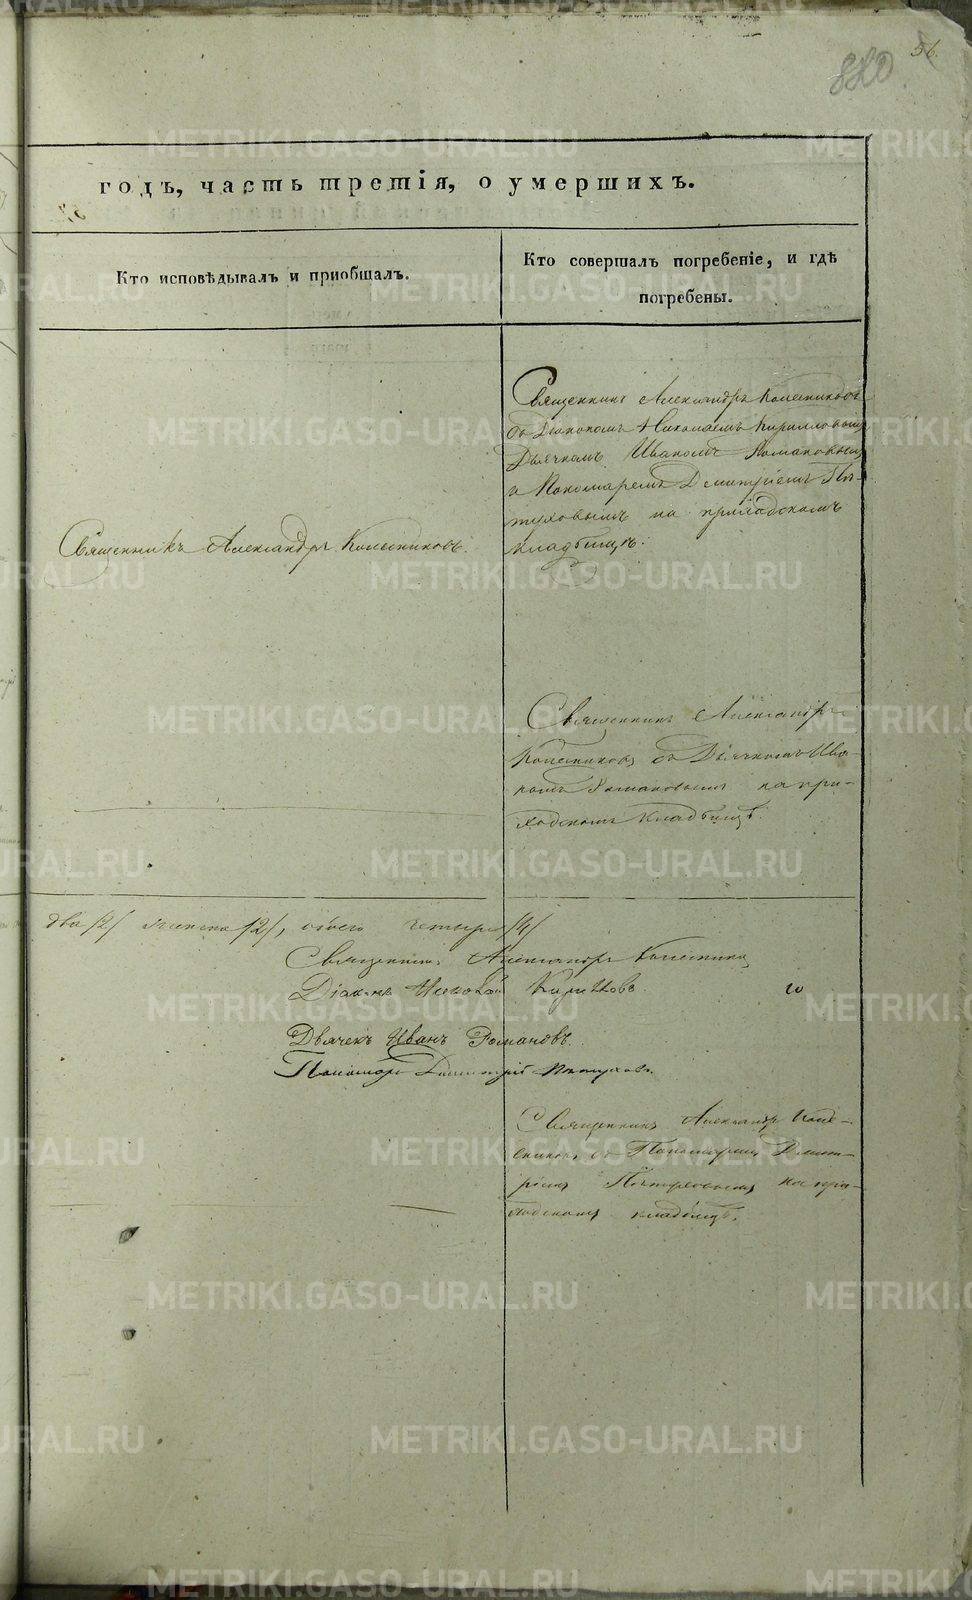 56.
880
годъ, часть третія, о умершихъ.
Кто исповѣдывалъ и приобщалъ.
Кто совершалъ погребеніе, и гдѣ
погребены.
Священникъ Александръ Колесниковъ
съ Діакономъ Николаемъ Кирилловымъ
Дьячкомъ Иваномъ Романовымъ
и Пономаремъ Дмитріемъ Пѣ-
туховымъ на приходскомъ
кладбищѣ.
Священникъ Александръ Колесниковъ.
Священникъ Александръ
Колесниковъ съ Дьячкомъ Ива-
номъ Романовымъ на при-
ходскомъ кладбищѣ.
два /2/ женска /2/, обоего четыре /4/
Священникъ Александръ Колесников
Діаконъ Николай Кирилловъ
Дьячекъ Иванъ Романовъ.
Пономарь Дмитрій Пѣтуховъ.
Священникъ Александръ Коле-
сниковъ съ Пономаремъ Дмит-
ріемъ Пѣтуховымъ на при-
ходскомъ кладбищѣ.
METRIKI.GASO-URAL.RU